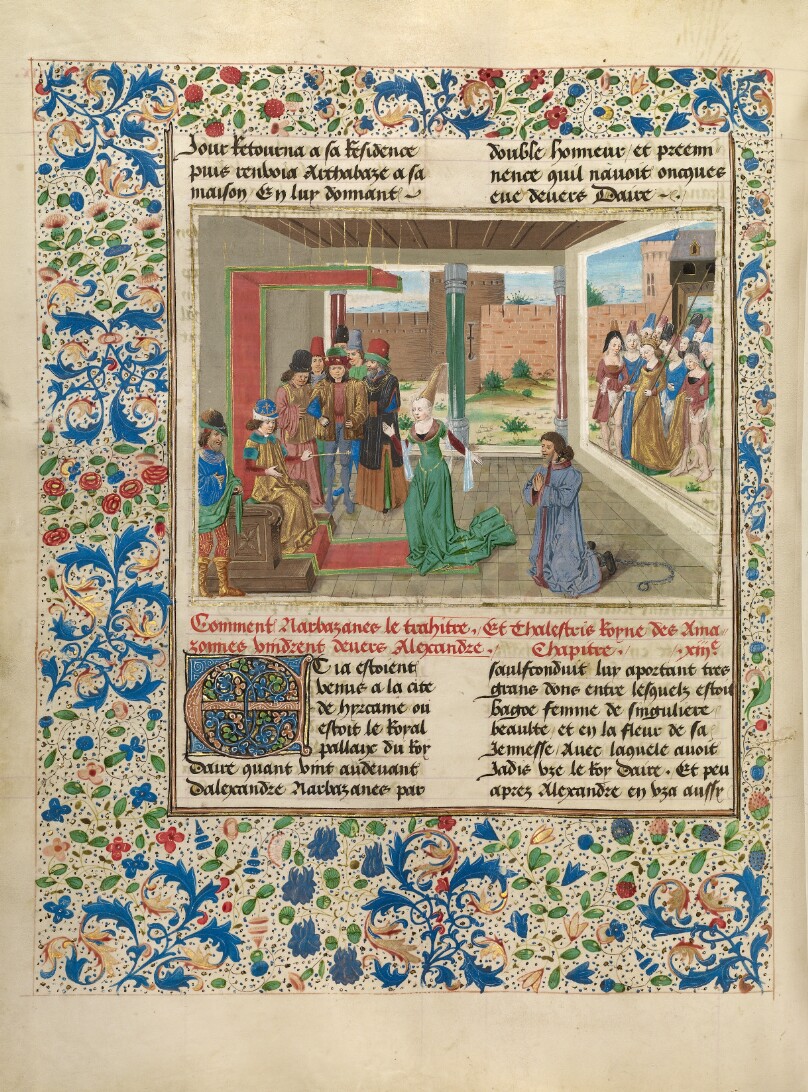 Jour Retourna a sa Residence
puis renvoia Arthabaze a sa
maison En luy donnant
double honneur et preemi
nence quil navoit oncques
eue devers Daire
Comment Narbazanes le trahitre. Et Thalestris Royne des Ama
zonnes vindrent devers Alexandre. Chapitre. .xiiie
Et ia estoient
venus a la cite
de hyrcaine ou
estoit le Royal
pallaix du Roy
Daire quant vint audevant
Dalexandre Narbazanes par
saulfconduit luy aportant tres
grans dons entre lesquelz estoit
bagoe femme de singuliere
beaulte et en la fleur de sa
Jennesse Avec laquele avoit
Jadis vze le Roy Daire. Et peu
aprez Alexandre en vza aussy